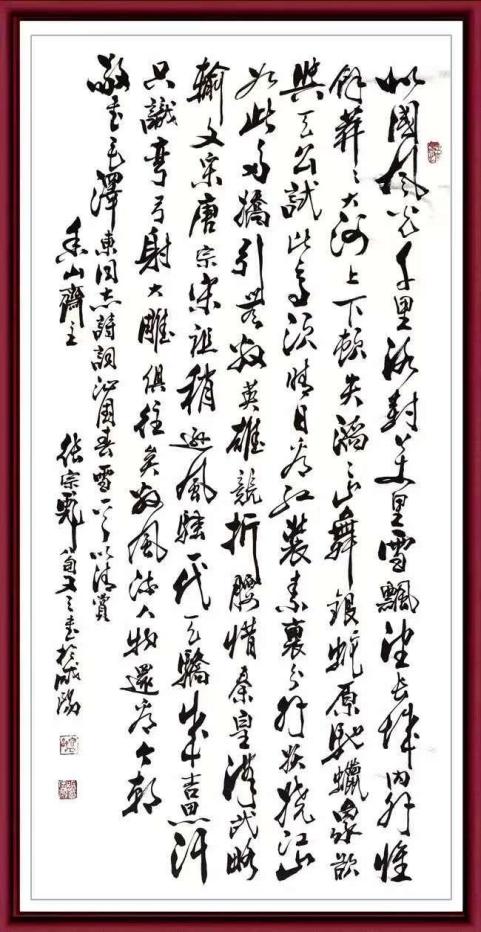 北國風光千里冰封萬里雪飄望長城内外惟
餘莽々大河上下頓失滔々山舞銀蛇原馳蠟象欲
與天公試比高須晴日看紅裝素裹分外妖嬈江山
如此多嬌引無數英雄競折腰惜秦皇漢武略
輸文采唐宗宋祖稍遜風騷一代天驕成吉思汗
只識彎弓射大雕俱往矣數風流人物還看今朝
敬書毛澤東同志詩詞沁園春雪一首以清賞
香山齋主 張宗 八旬又三書於咸陽